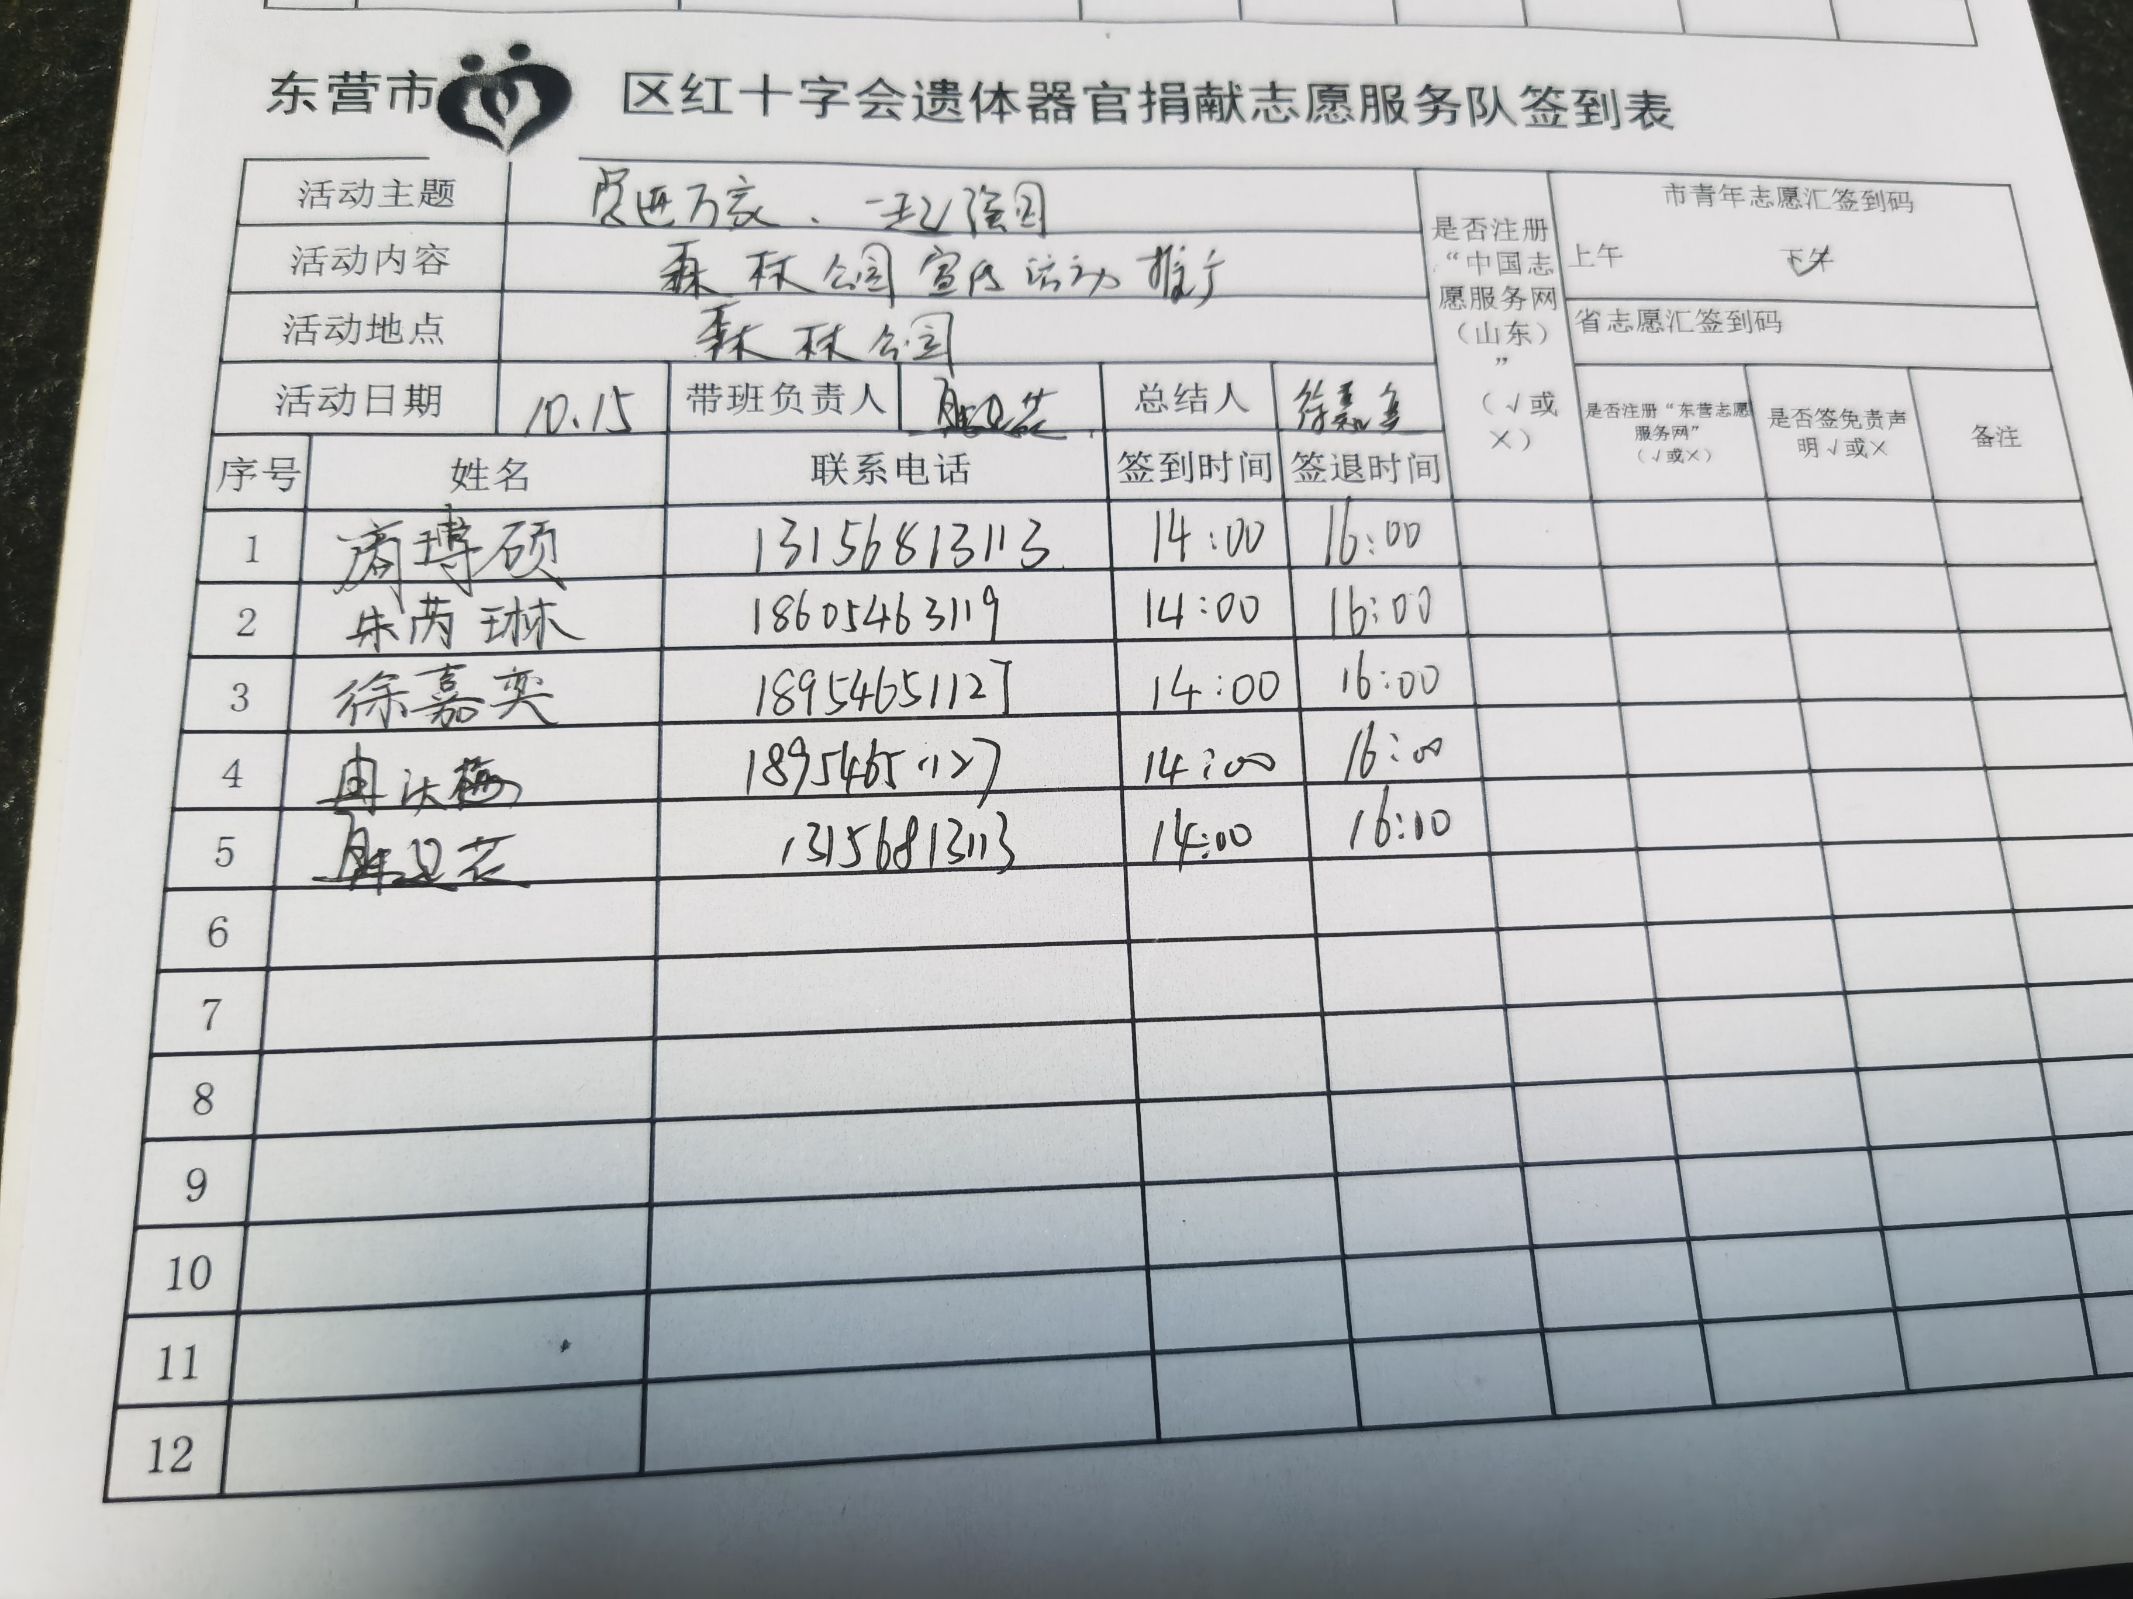 东营市 区红十字会遗体器官捐献志愿服务队签到表
活动主题 进万家、一起强国
活动内容 森林公园宣传活动推广
活动地点 森林公园
活动日期 10.15 带班负责人 总结人 徐嘉奕
是否注册“中国志愿服务网（山东）”（√或×）
市青年志愿汇签到码
上午 下午
省志愿汇签到码
是否注册“东营志愿服务网”（√或×） 是否签免责声明√或× 备注
序号 姓名 联系电话 签到时间 签退时间
1 商博硕 13156813113 14:00 16:00
2 朱芮琳 18605463119 14:00 16:00
3 徐嘉奕 18954651127 14:00 16:00
4 18954651127 14:00 16:00
5 13156813113 14:00 16:10
6
7
8
9
10
11
12